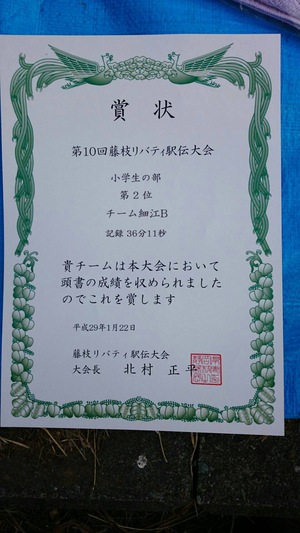 賞状
第10回藤枝リバティ駅伝大会
小学生の部
第2位
チーム細江B
記録 36分11秒
貴チームは本大会において
頭書の成績を収められました
のでこれを賞します
平成29年1月22日
藤枝リバティ駅伝大会
大会長 北村 正平